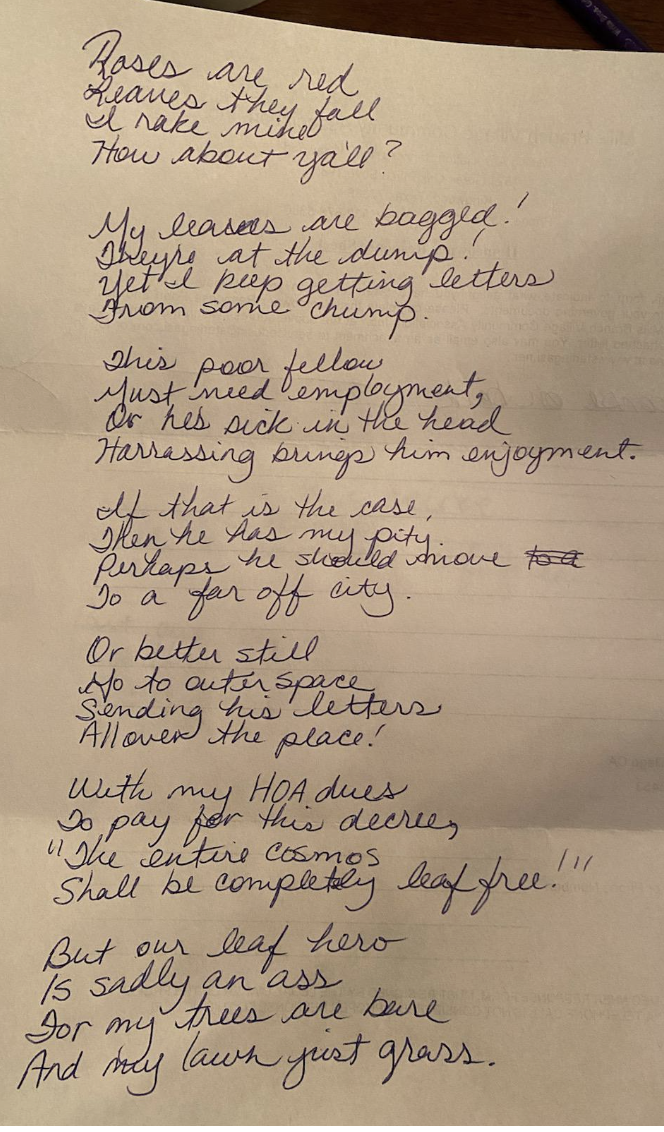 Roses are red
Leaves they fall
I rake mine
How about ya'll?
My leaves are bagged!
They're at the dump!
Yet I keep getting letters
From some chump.
This poor fellow
Must need employment,
Or he's sick in the head
Harrassing brings him enjoyment.
If that is the case,
Then he has my pity.
Perhaps he should move to a
To a far off city.
Or better still
Go to outer space
Sending his letters
All over the place!
With my HOA dues
To pay for this decree,
"The entire cosmos
Shall be completely leaf free!"
But our leaf hero
Is sadly an ass
For my trees are bare
And my lawn just grass.